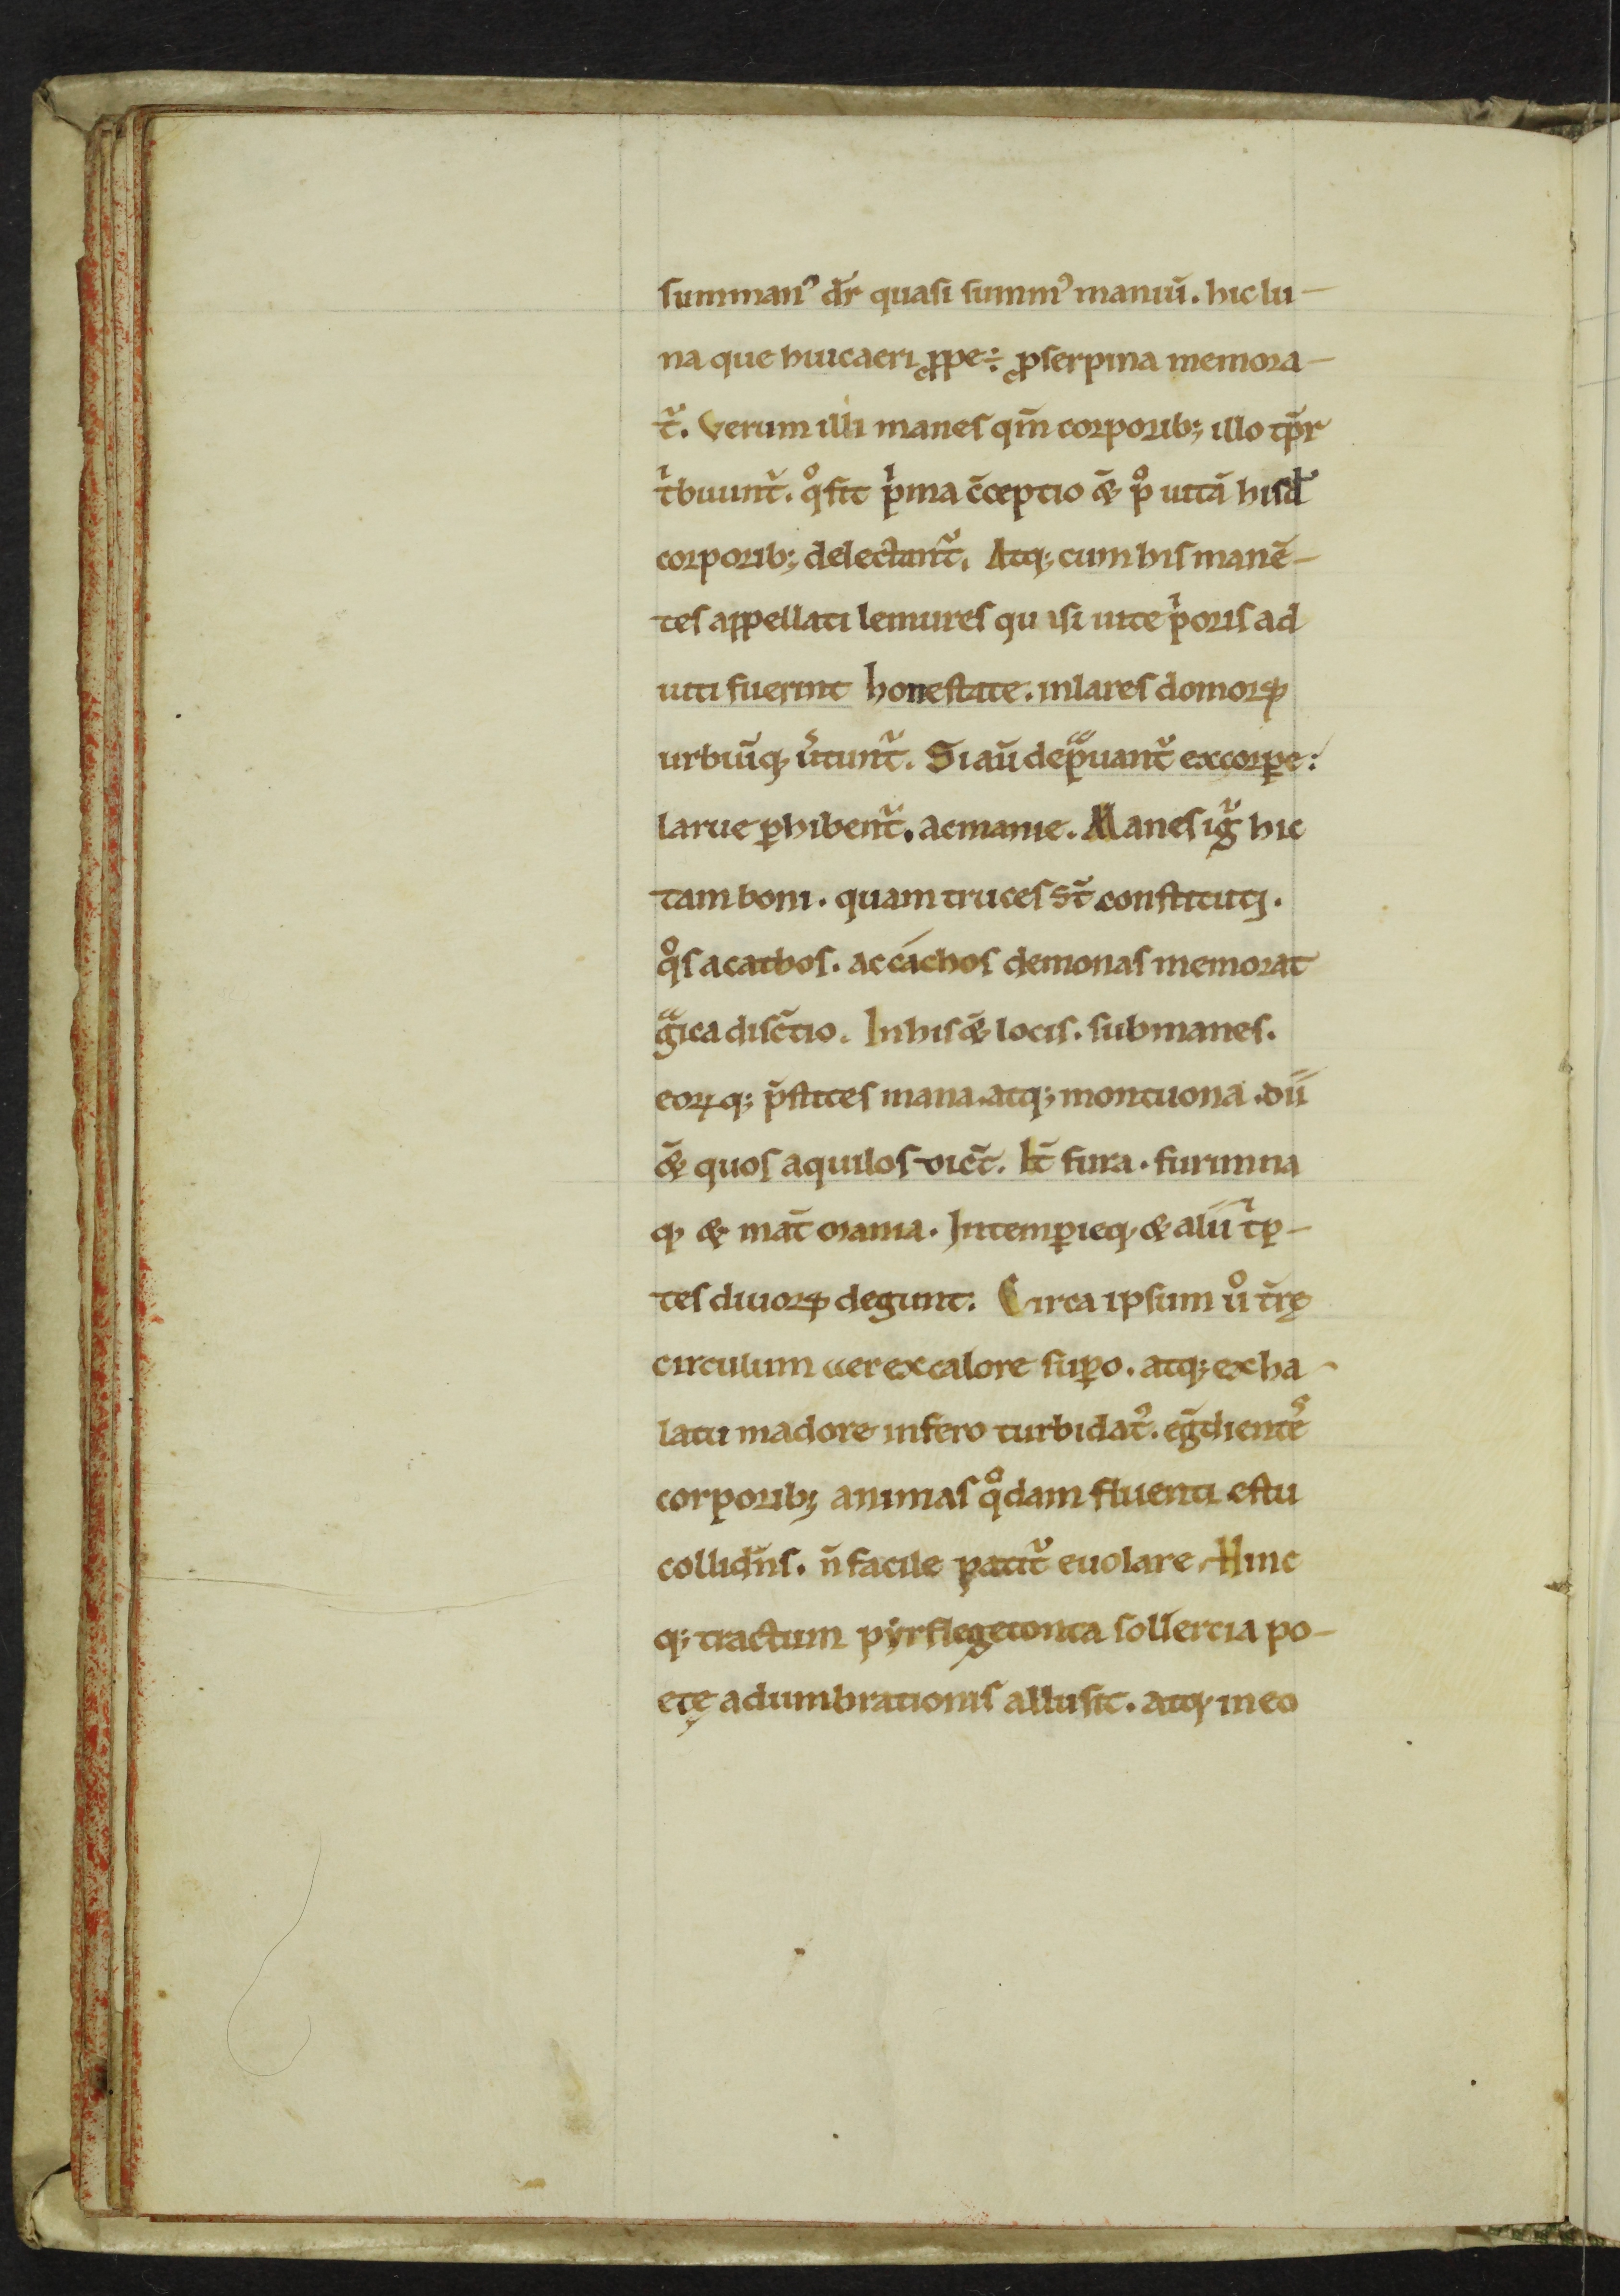 summanꝰ dr̄ quasi summꝰ maniū. hic lu-
na que huic aeri ꝓpe÷ ꝓserpina memora-
t᷑. Verum illi manes qm̄ corporib; illo tp̄r
tⁱbuunt᷑. qͦ fit pⁱma c̄ceptio & pͦ uitā hisd̄
corporib; delectant᷑. Atq; cum his manē-
tes appellati lemures quasi uite pⁱoris ad
uiti fuerint honestate. in lares domoꝝ
urbiūq; ūtunt᷑. Si aū depᵃuant᷑ ex corꝑe:
larue ꝑhibent᷑. ac manie. Manes igͬ hic
tam boni. quam truces st̄ constituti.
qͦs acathos. ac cachos demonas memorat
gᵃica disc̄tio. In his &̄ locis. sub manes.
eoꝝq; p̄stites mana. atq; montuona. dii
&̄ quos aquilos dic̄t. It̄ fura. furinna
q; & mat̄ mania. Intemꝑieq; & alii tⁱꝑ-
tes diuoꝝ degunt. Circa ipsum uͦ t̄rę
circulum aer ex calore suꝑo. atq; ex ha-
latu madore infero turbidatꝰ. eg̅dientēs
corporib; animas qͦdam fluenti estu
collid̄ns. n̄ facile patit᷑ euolare. Hinc
q; tractum pyrflegetonta sollercia po-
etę adumbrationis allusit. atq; in eo